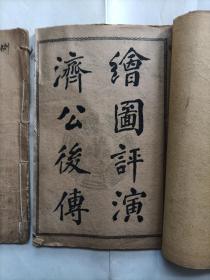 繪圖評演
濟公後傳